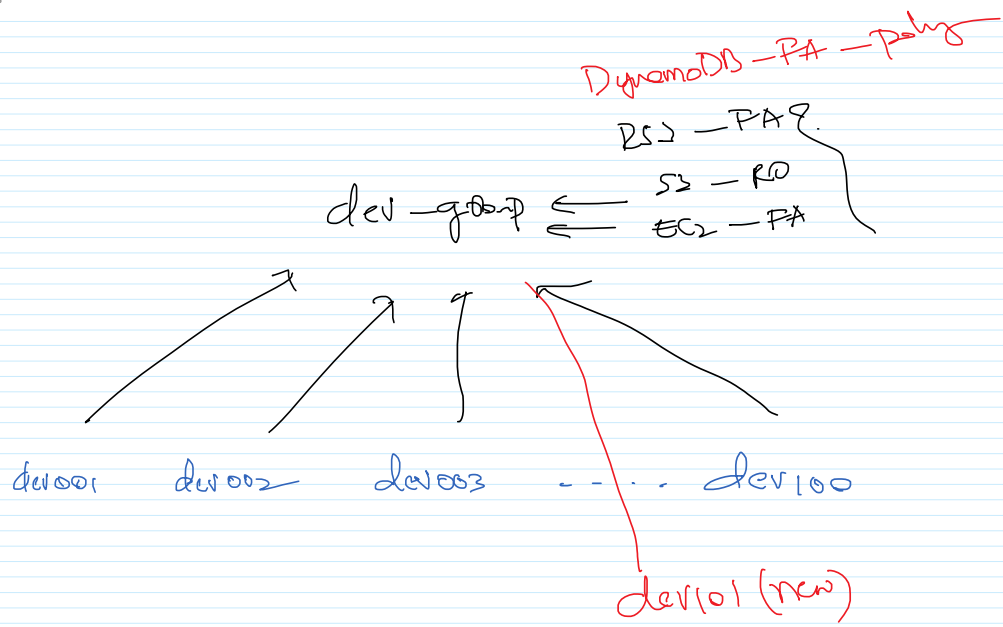 DynamoDB-FA-policy
RDS - FA
S3 - RO
dev-group
EC2 - FA
dev001 dev002 dev003 - - . . dev100
dev101 (new)